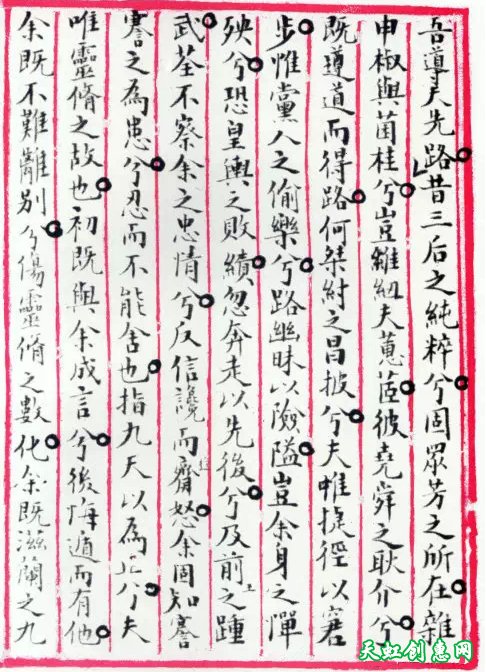 吾導夫先路昔三后之純粹兮固眾芳之所在雜
申椒與菌桂兮豈維紉夫蕙茝彼堯舜之耿介兮
既遵道而得路何桀紂之昌披兮夫惟捷徑以窘
步惟黨人之偷樂兮路幽昧以險隘豈余身之憚
殃兮恐皇輿之敗績忽奔走以先後兮及前之踵
武荃不察余之忠情兮反信讒而齌怒余固知謇
謇之為患兮忍而不能舍也指九天以為正兮夫
唯靈脩之故也初既與余成言兮後悔遁而有他
余既不難離別兮傷靈脩之數化余既滋蘭之九
天虹创惠网